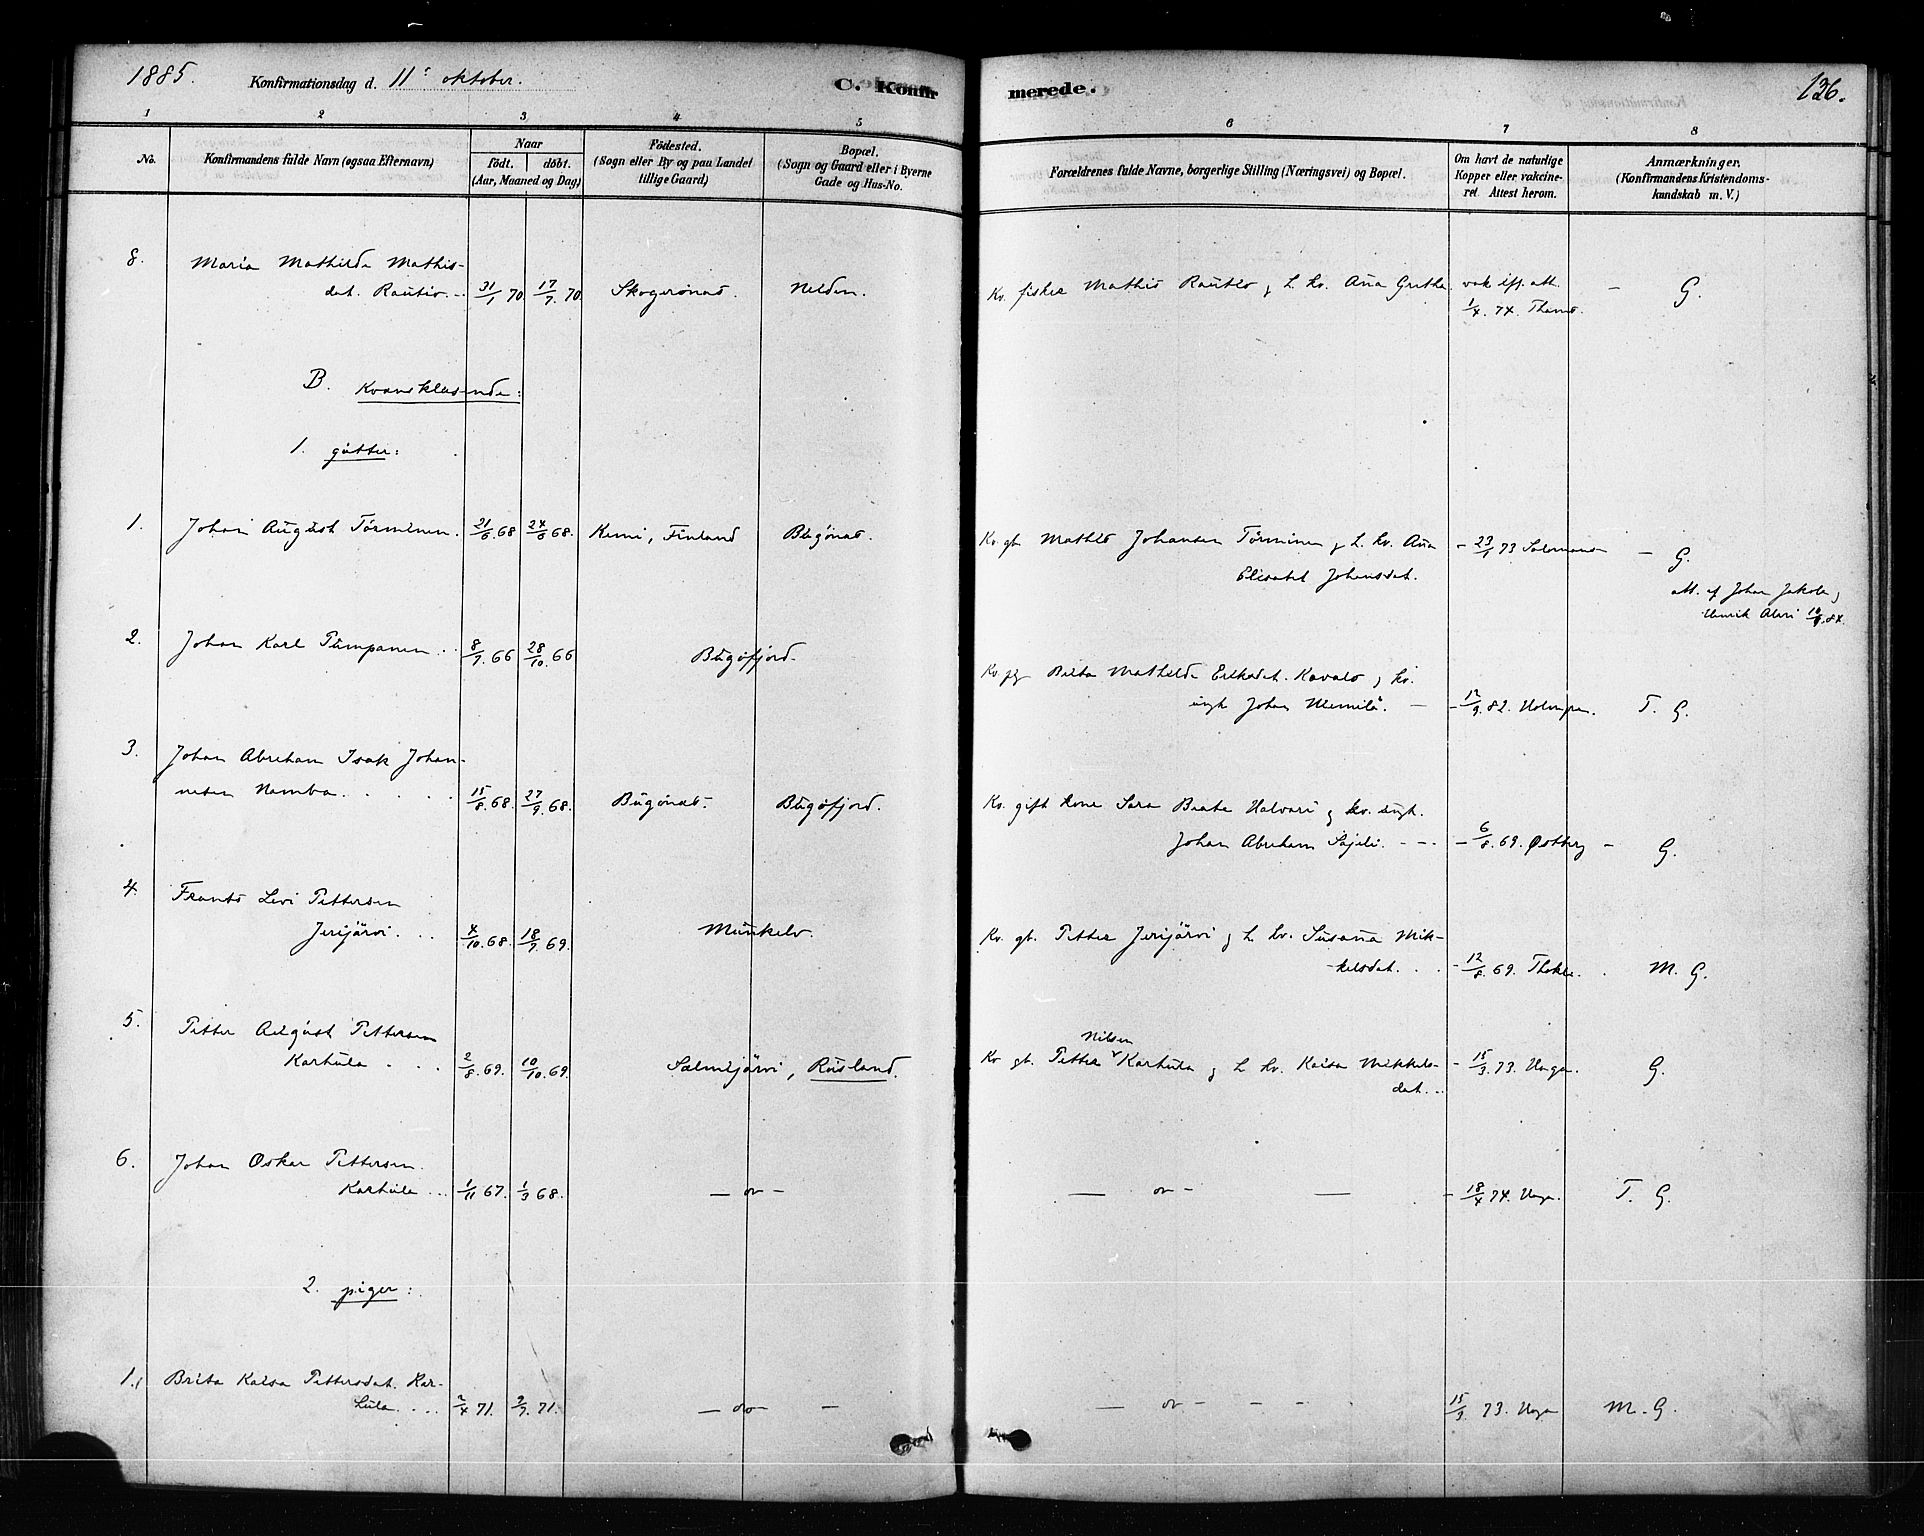 1885. Konfirmationsdag d. 11' oktober. C. Konfirmerede. 136.
1 2 3 4 5 6 7 8
No. Konfirmandens fulde Navn (ogsaa Efternavn) Naar födt. döbt. (Aar, Maaned og Dag) Födested. (Sogn eller By og paa Landet tillige Gaard) Bopæl. (Sogn og Gaard eller i Byerne Gade og Hus-No. Forældrenes fulde Navne, borgerlige Stilling (Næringsvei) og Bopæl. Om havt de naturlige Kopper eller vakcineret. Attest herom. Anmærkninger. (Konfirmandens Kristendomskundskab m. V.)
8. Maria Mathilde Mathis-
dat. Rautio. 31/1 70 17/7 70. Skogerönæs. Neiden. Kv. fisker Mathis Rautio & h. kv. Ana Grethe. vak. ifl. att.
1/4. 74. - G.
B. Kvænsktalende:
1. gutter:
1. Johan August Törminen. 21/6 68 24/6 68. Kemi, Finland Bugönæs. Kv. gb. Mathis Johansen Törminen & h. kv. Ana - 23/1 73 - G.
Elisabet Johansdat.
att. af Johan Jakola &
2. Johan Karl Pumpanen . . 8/7 66 28/10. 66 Bugöfjord. Kv. pg. Brita Mathilde Eriksdat. Kavalo & kv.
ungk. Johan - 12/9. 82. T. G.
3. Johan Abraham Isak Johan-
nesen Hamba . . . . 15/8. 68. 27/9. 68. Bugönæs. Bugöfjord. Kv. gift kone Sara Beata Halvari & kv. ungk.
Johan Abraham - 6/8. 69. Östberg - G.
4. Frants Levi Pettersen
Jerijärvi. . . 4/10. 68. 18/7. 69. Munkelv. Kv. gb. Petter Jerijärvi & h. kv. Susana Mik-
kelsdat. . . - 12/8. 69. M. G.
5. Petter August Pettersen
Karhula . . . 2/8. 69. 10/10. 69. Salmijärvi, Rusland. Nilsen
Kv. gb. Petter Karhula & h. kv. Kaisa Mikkels- - 15/3. 73. G.
dat. . .
6. Johan Oskar Pettersen.
Karhula . . 1/11 67. 1/3 68. — do — — do — — - 18/4 74. T. G.
2. piger:
1. Brita Kaisa Pettersdat. Kar-
hula. . . . 2/4 71. 2/7. 71. — do — — — do — - - - . 15/3. 73. M. G.